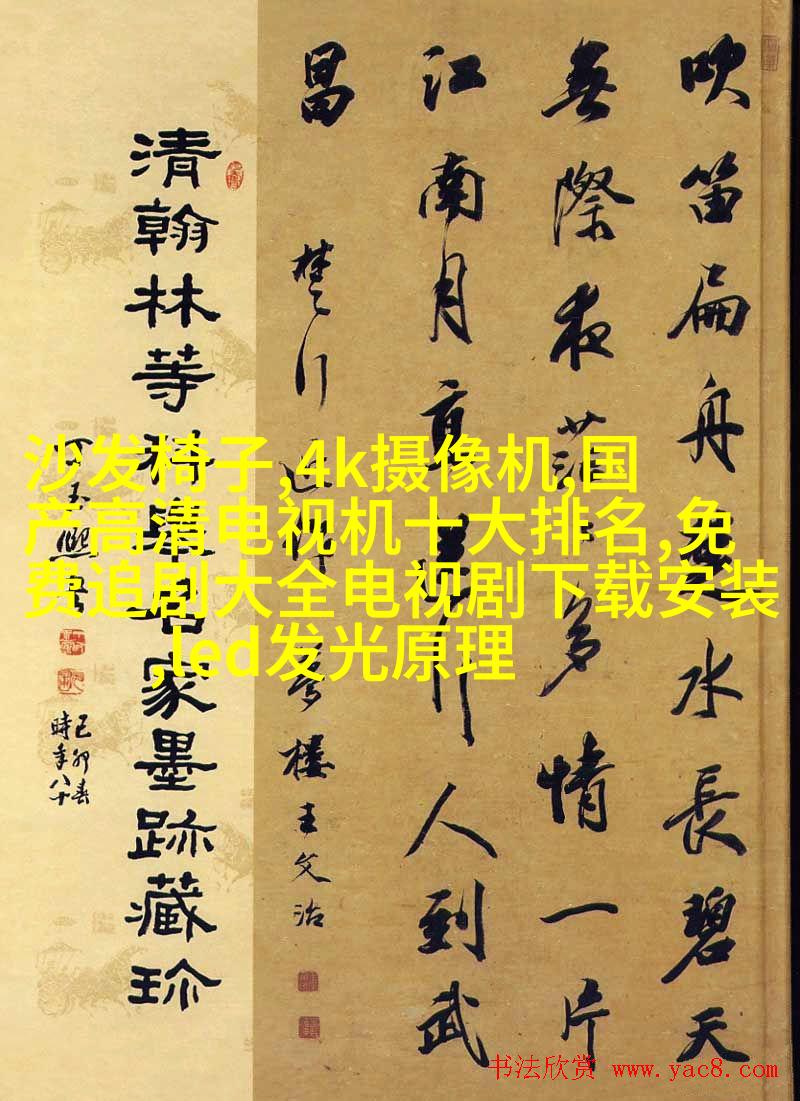 吹笛扁舟水長碧天
無際夜茫多情一片
江南月直行人到武
昌
楚行 夢樓王文治
清翰林等家墨跡藏珍
己卯春
時年八十
沙发椅子,4k摄像机,国
产高清电视机十大排名,免
费追剧大全电视剧下载安装
,led发光原理
书法欣赏 www.yac8.com